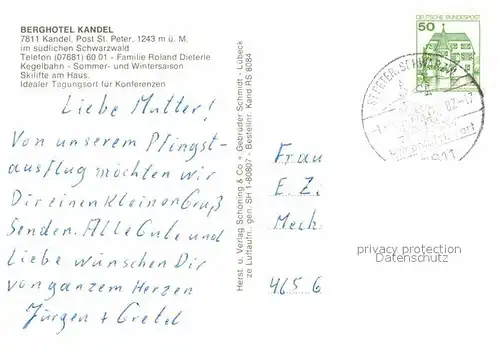 BERGHOTEL KANDEL
7811 Kandel, Post St. Peter, 1243 m ü. M.
im südlichen Schwarzwald
Telefon (07681) 60 01 - Familie Roland Dieterle
Kegelbahn - Sommer- und Wintersaison
Skilifte am Haus.
Idealer Tagungsort für Konferenzen
Liebe Mutter!
Von unserem Pfingst-
ausflug möchten wir
Dir einen kleinen Gruß
senden. Alles Gute und
Liebe wünschen Dir
von ganzem Herzen
Jürgen + Gretel
Herst. u. Verlag Schöning & Co + Gebrüder Schmidt - Lübeck
ze Luftaufn. gen. SH 1-80807 - Bestellnr. Kand RS 8084
DEUTSCHE BUNDESPOST
50
ST. PETER, SCHWARZW
02.-17
7811
Frau
E. Z.
Mech
465 G
privacy protection
Datenschutz